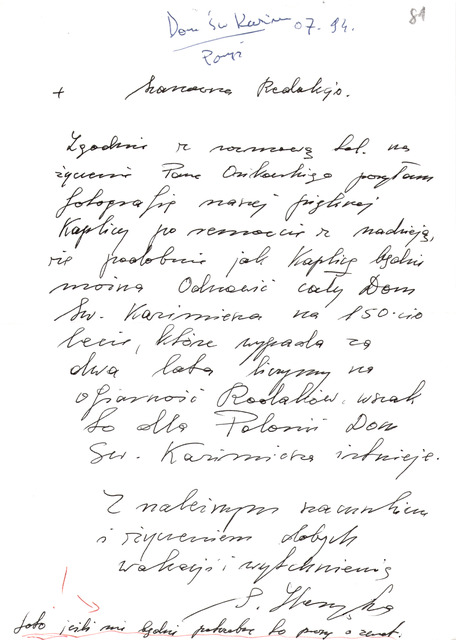 Dom Św Kazim 07.94.
81
Paryż
+ Szanowna Redakcjo.
Zgodnie z rozmową tel. na
życzenie Pana Onikowskiego posyłam
fotografię naszej ślicznej
Kaplicy po remoncie z nadzieją,
że podobnie jak Kaplicę będzie
można Odnowić cały Dom
Św. Kazimierza na 150-cio
lecie, które wypada za
dwa lata liczymy na
ofiarność Rodaków. wszak
to dla Polonii Dom
Św. Kazimierza istnieje.
Z należnym szacunkiem
i życzeniem dobrych
wakacji i wytchnienia
S.
foto jeśli nie będzie potrzebne to proszę o zwrot